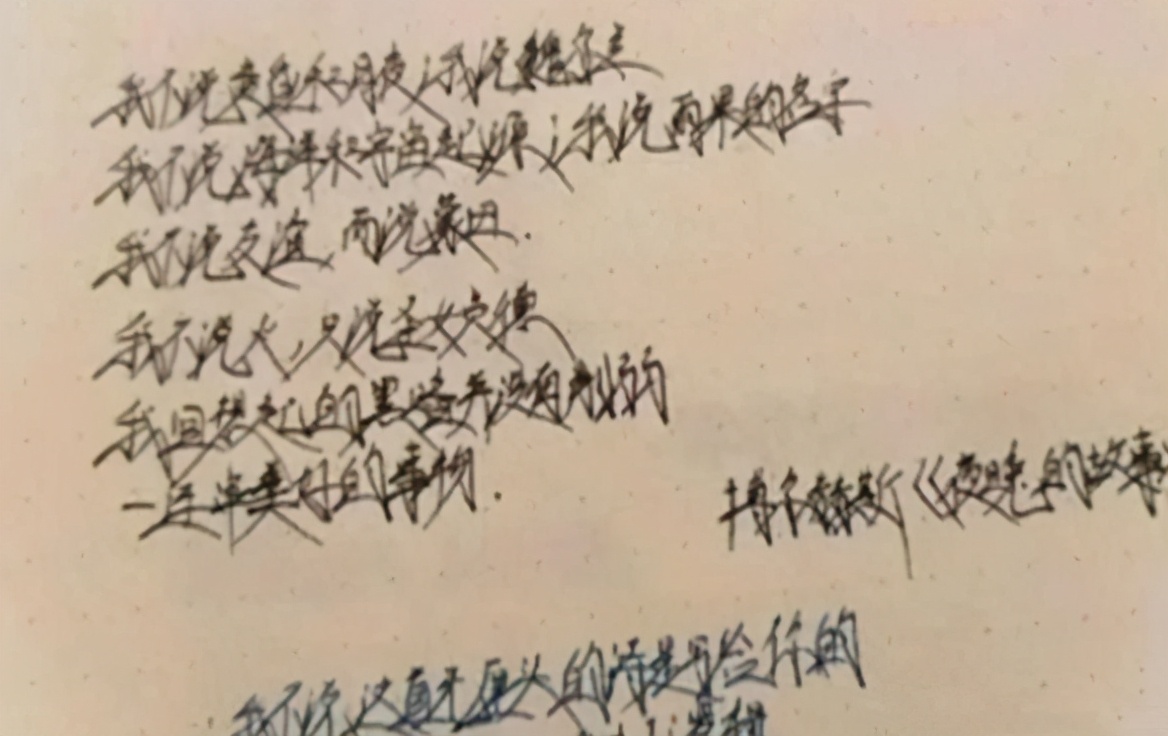 我不说暮色和月夜;我说魏尔兰
我不说海洋和宇宙起源;我说雨果的名字
我不说友谊,而说蒙田.
我不说火,只说圣女贞德
我回想起的黑暗并没有削弱
一连串美好的事物.
博尔赫斯《夜晚的故事
我不说这真无厘头的诗是写给你的